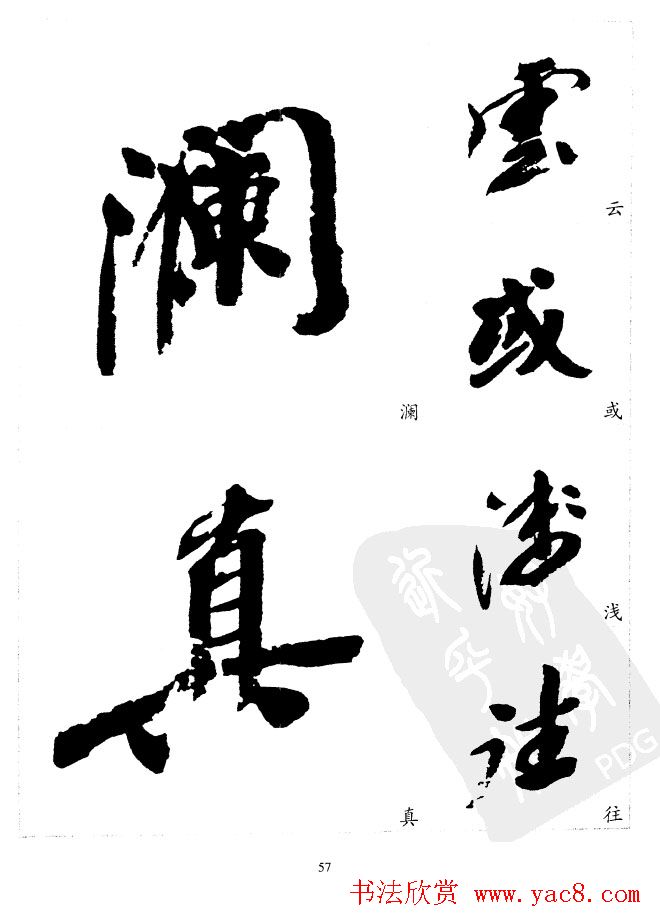 雲
云
或
或
浅
浅
往
往
瀾
澜
真
真
57
书法欣赏 www.yac8.com
PDG